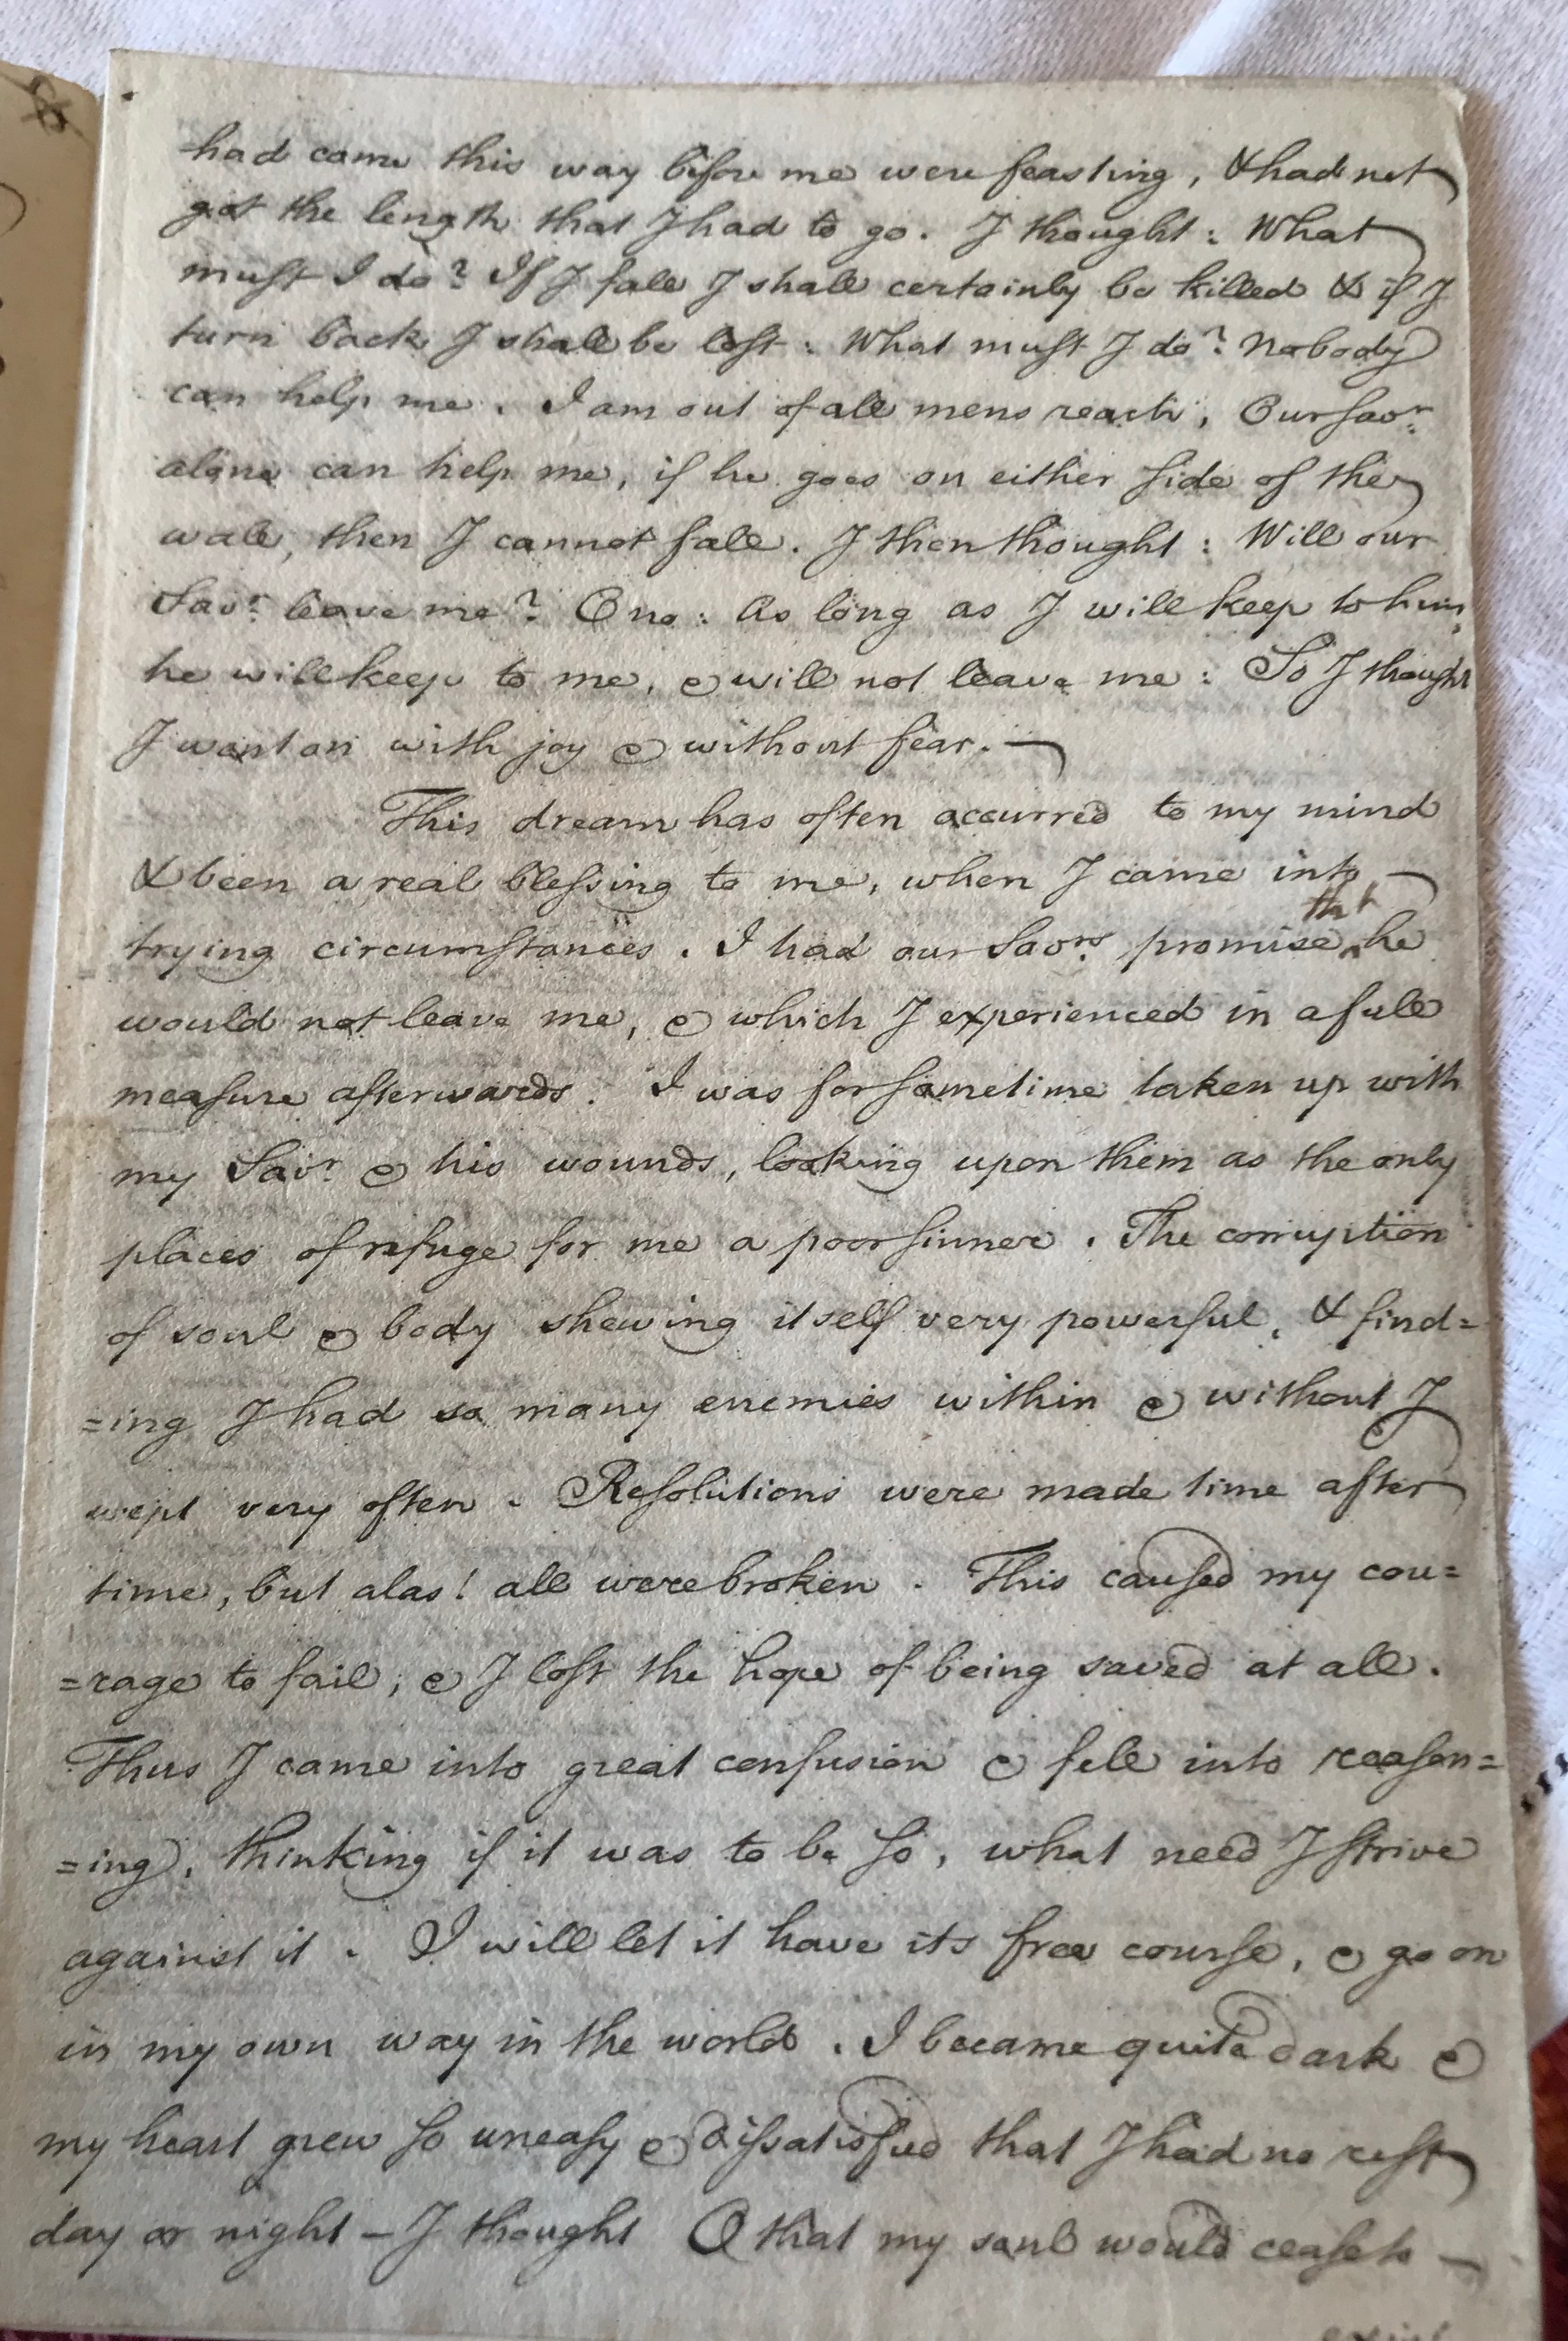 had came this way before me were feasting, & had not
got the length that I had to go. I thought: What
must I do? If I fall I shall certainly be killed & if I
turn back I shall be lost: What must I do? Nobody
can help me. I am out of all mens reach, Our Savr:
alone can help me, if he goes on either side of the
wall, then I cannot fall. I then thought: Will our
Savr: leave me? O no: As long as I will keep to him,
he will keep to me, & will not leave me: So I thought
I went on with joy & without fear. —
This dream has often accurred to my mind
& been a real blessing to me, when I came into —
trying circumstances. I had our Savrs: promise that he
would not leave me, & which I experienced in a full
measure afterwards. I was for sometime taken up with
my Savr: & his wounds, looking upon them as the only
places of refuge for me a poor sinner. The corruption
of soul & body shewing itself very powerful, & find=
=ing I had so many enemies within & without I
wept very often. Resolutions were made time after
time, but alas! all were broken. This caused my cou=
=rage to fail; & I lost the hope of being saved at all.
Thus I came into great confusion & fell into reason=
=ing, thinking if it was to be so, what need I strive
against it. I will let it have its free course, & go on
in my own way in the world. I became quite dark &
my heart grew so uneasy & dissatisfied that I had no rest
day or night — I thought O that my soul would cease to —